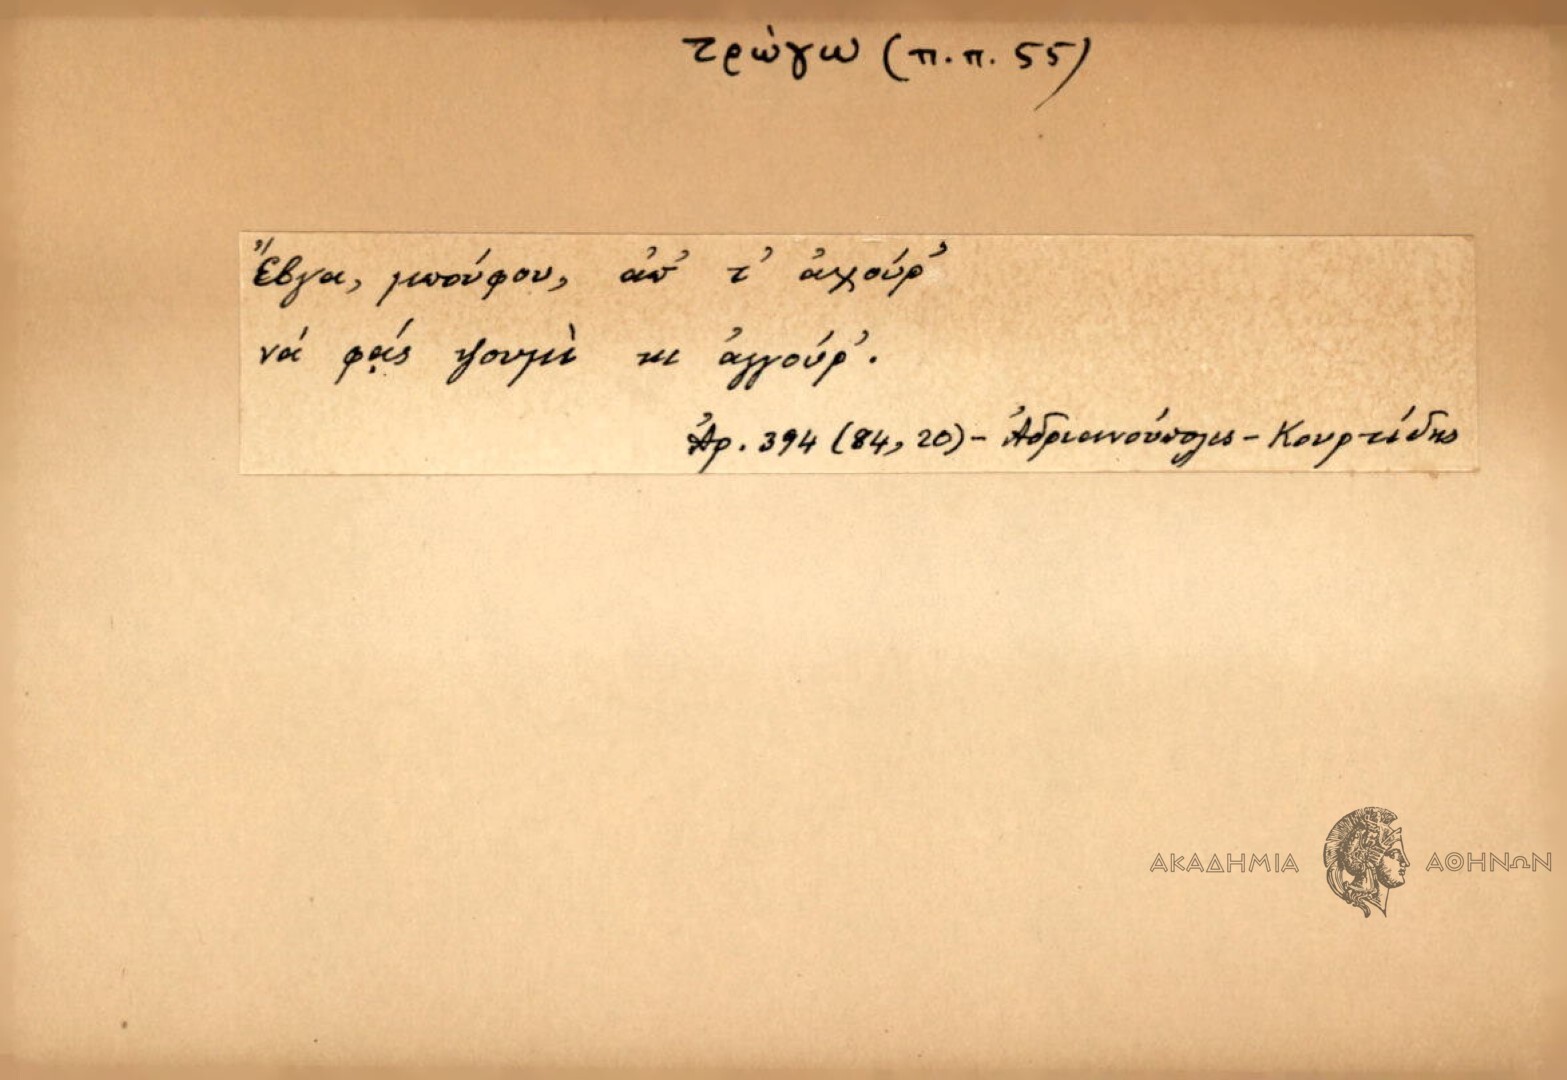 τρώγω (π.π. 55)
Ἔβγα, μπούφου, ἀπ' τ' ἀχούρ'
νά φᾴς ψουμὶ κι ἀγγούρ'.
Ἀρ. 394 (84, 20) - Ἀδριανούπολις - Κουρτίδης
ΑΚΑΔΗΜΙΑ ΑΘΗΝΩΝ